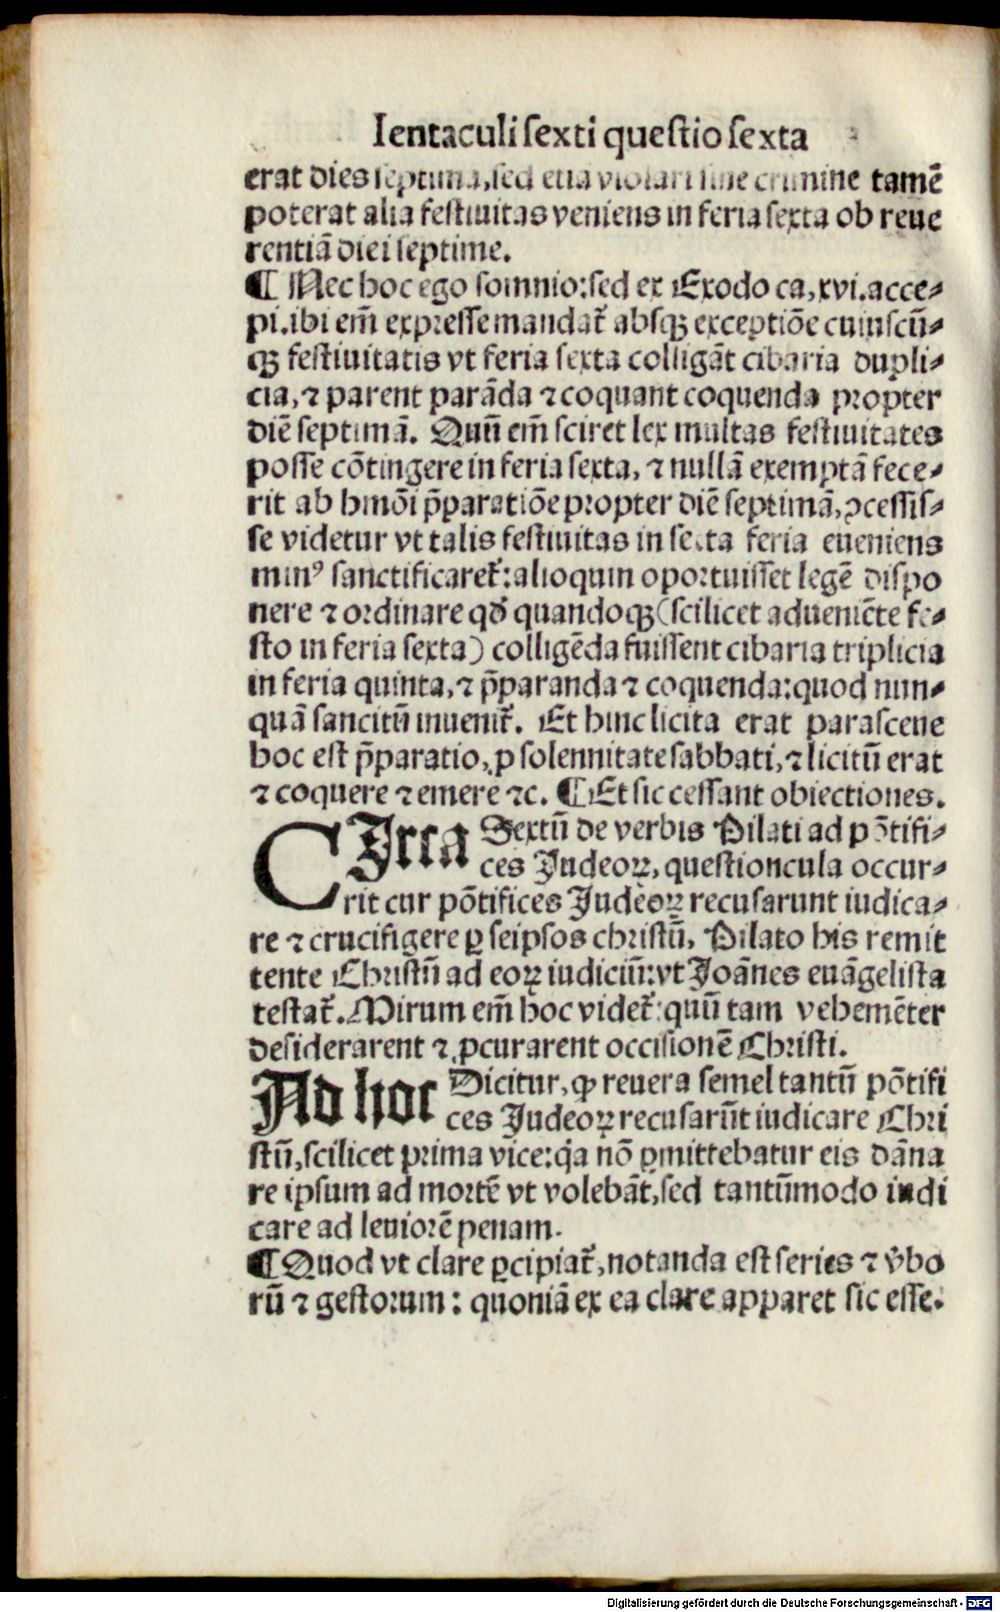 Ientaculi sexti questio sexta
erat dies septima, sed etiã violari sine crimine tamẽ
poterat alia festiuitas veniens in feria sexta ob reue
rentiã diei septime.
¶ Nec hoc ego somnio: sed ex Exodo ca, xvi. acce⸗
pi. ibi em̃ expresse mandat᷑ absqꝫ exceptiõe cuiuscũ⸗
qꝫ festiuitatis vt feria sexta colligãt cibaria dupli⸗
cia, ⁊ parent parãda ⁊ coquant coquenda propter
diẽ septimã. Quũ em̃ sciret lex multas festiuitates
posse cõtingere in feria sexta, ⁊ nullã exemptã fece⸗
rit ab hmõi p̃paratiõe propter diẽ septimã, ꝓcessis⸗
se videtur vt talis festiuitas in sexta feria eueniens
minꝰ sanctificaret᷑: alioquin oportuisset legẽ dispo
nere ⁊ ordinare qď quandoqꝫ (scilicet adueniẽte fe⸗
sto in feria sexta) colligẽda fuissent cibaria triplicia
in feria quinta, ⁊ p̃paranda ⁊ coquenda: quod nun⸗
quã sancitũ inuenit᷑. Et hinc licita erat parascene
hoc est p̃paratio, ꝓ solennitate sabbati, ⁊ licitũ erat
⁊ coquere ⁊ emere ⁊c. ¶ Et sic cessant obiectiones.
CIrca Sextũ de verbis Pilati ad põtifi⸗
ces Judeoꝝ, questioncula occur⸗
rit cur põtifices Judeoꝝ recusarunt iudica⸗
re ⁊ crucifigere ꝑ seipsos christũ, Pilato his remit
tente Christũ ad eoꝝ iudiciũ: vt Joãnes euãgelista
testat᷑. Mirum em̃ hoc videt᷑: quũ tam vehemẽter
desiderarent ⁊ ꝓcurarent occisionẽ Christi.
Ad hoc Dicitur, ꝙ reuera semel tantũ põtifi
ces Judeoꝝ recusarũt iudicare Chri
stũ, scilicet prima vice: q̃a nõ ꝑmittebatur eis dãna
re ipsum ad mortẽ vt volebãt, sed tantũmodo iudi
care ad leuiorẽ penam.
¶ Quod vt clare ꝑcipiat᷑, notanda est series ⁊ v̾bo
rũ ⁊ gestorum: quoniã ex ea clare apparet sic esse.
Digitalisierung gefördert durch die Deutsche Forschungsgemeinschaft - DFG